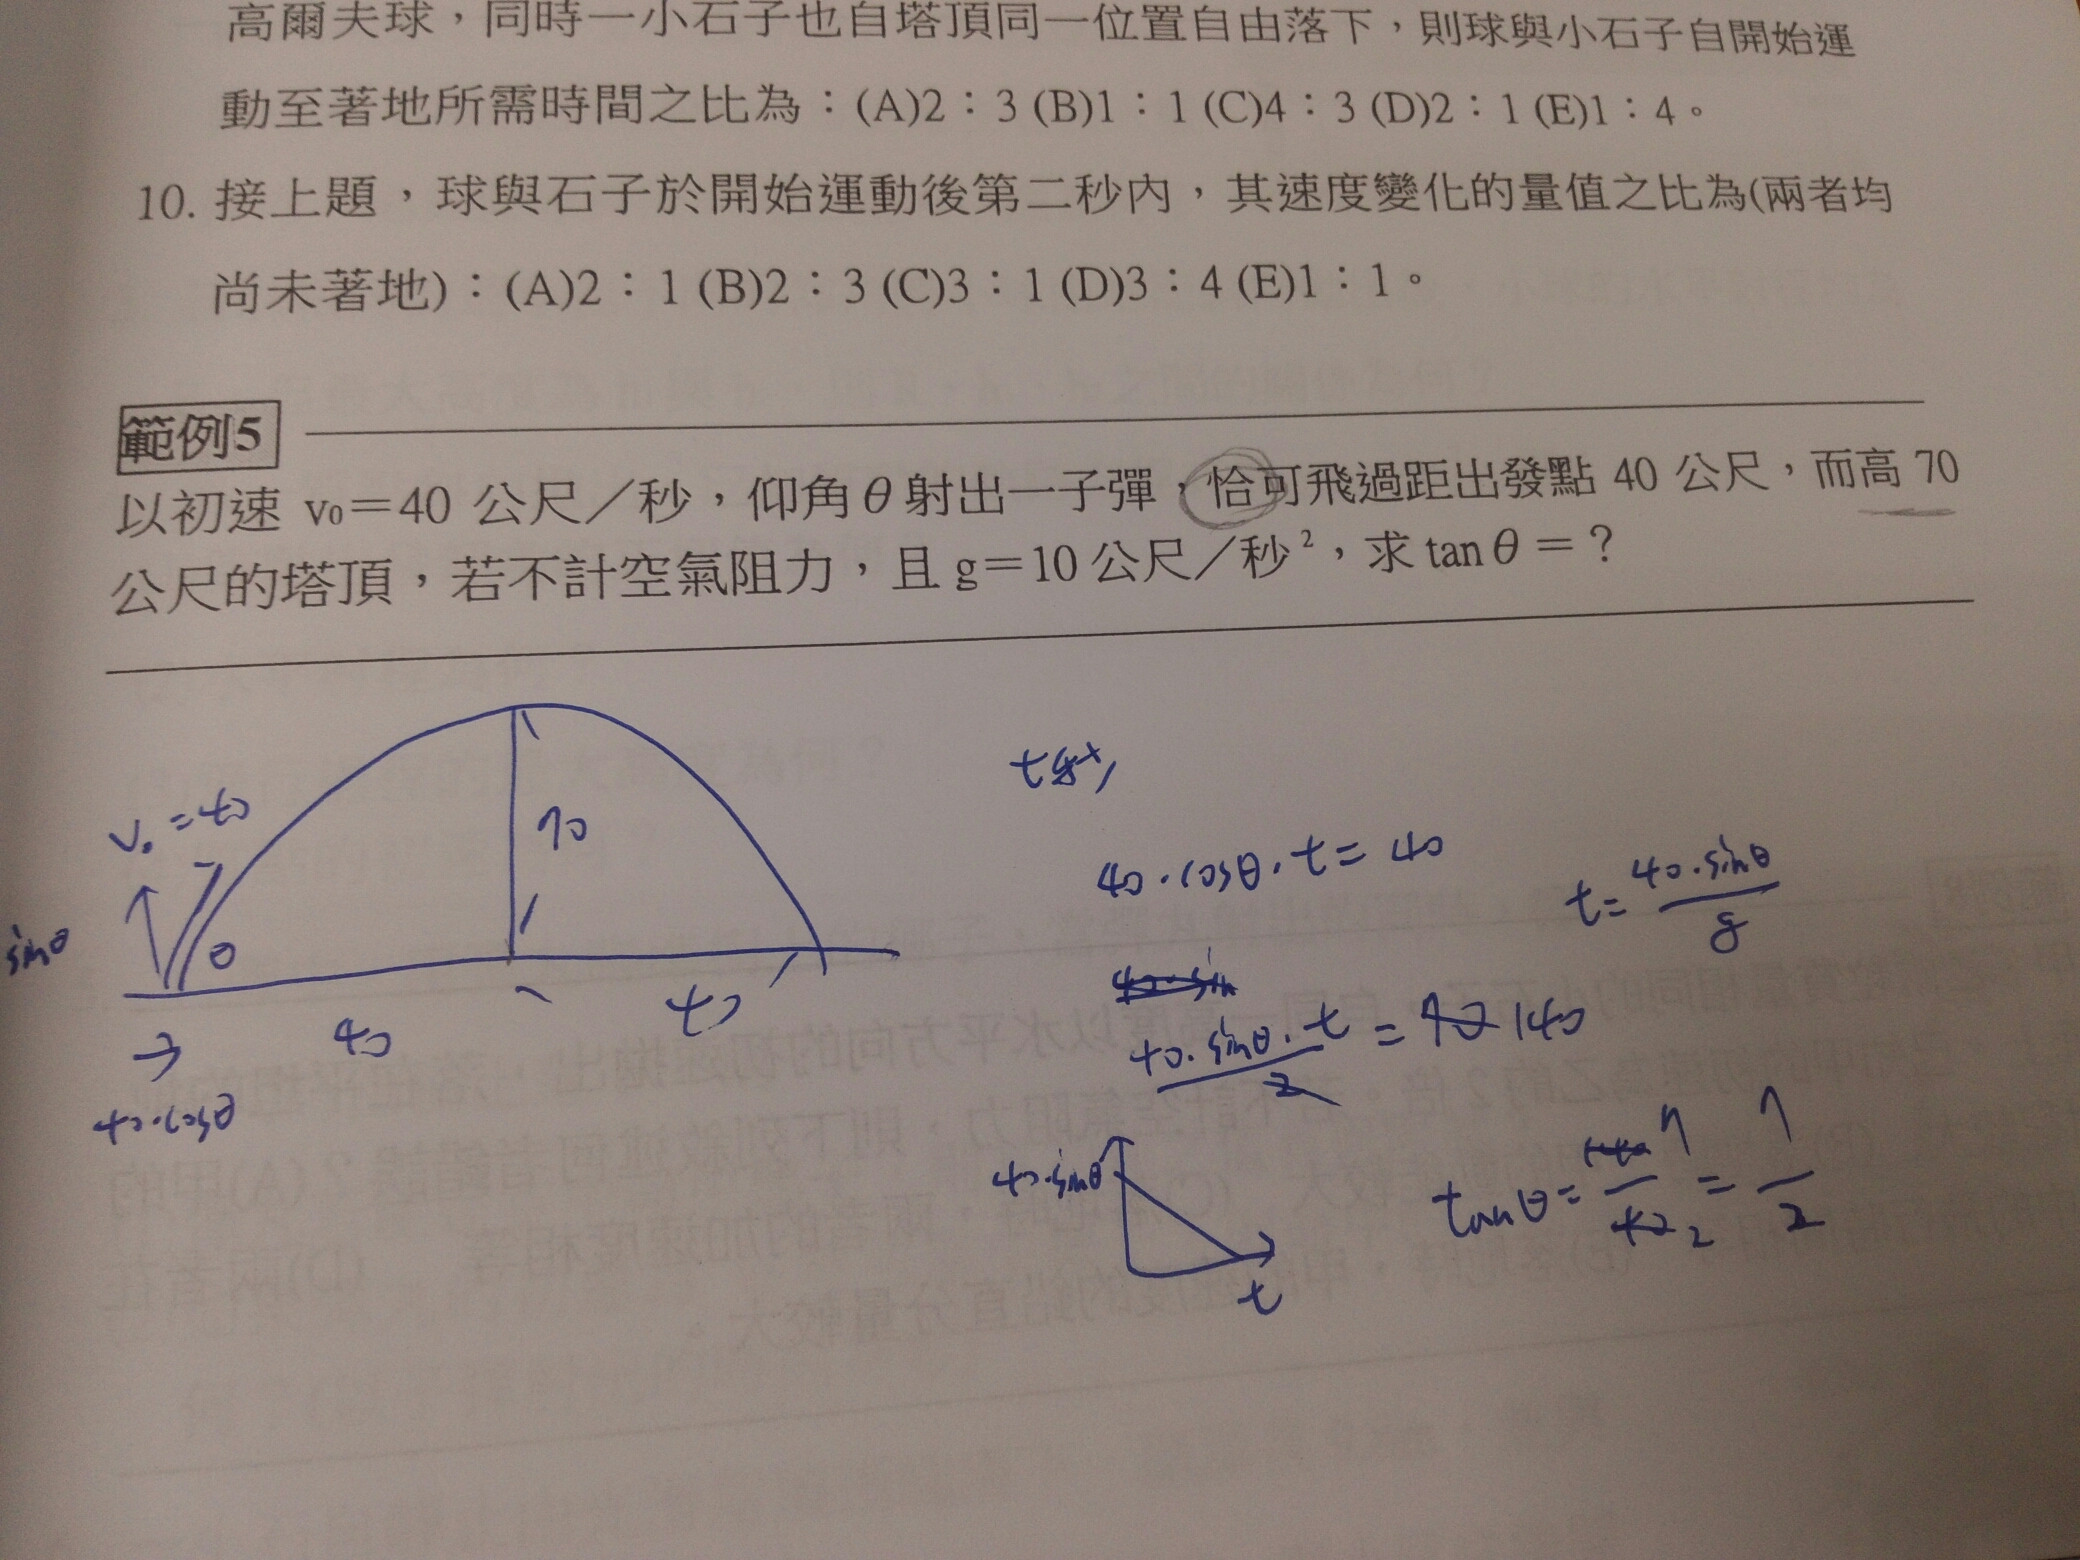 高爾夫球，同時一小石子也自塔頂同一位置自由落下，則球與小石子自開始運
動至著地所需時間之比為：(A)2：3 (B)1：1 (C)4：3 (D)2：1 (E)1：4。
10. 接上題，球與石子於開始運動後第二秒內，其速度變化的量值之比為(兩者均
尚未著地)：(A)2：1 (B)2：3 (C)3：1 (D)3：4 (E)1：1。
範例5
以初速 v₀＝40 公尺／秒，仰角θ射出一子彈，恰可飛過距出發點 40 公尺，而高 70
公尺的塔頂，若不計空氣阻力，且 g＝10 公尺／秒²，求 tanθ＝？
V₀ = 40
70
sinθ
θ
40
40
40·cosθ
40·cosθ·t = 40
t = 40·sinθ / g
40·sinθ·t / 2 = 70 140
40·sinθ
t
tanθ = 7 / 2 = 7 / 2